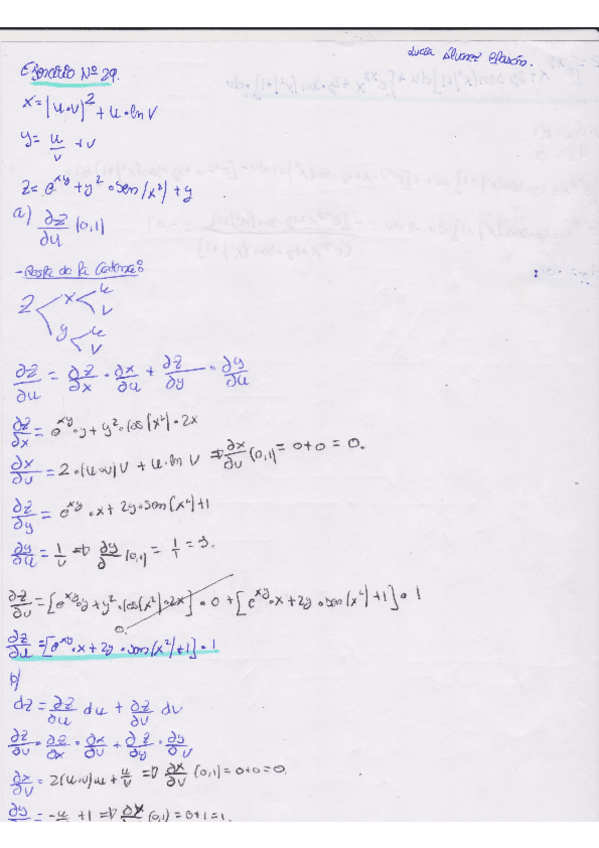 Lucía Álvarez
Ejercicio Nº 29.
x = (u·v)² + u·ln v
y = u/v + v
z = e^xy + y²·sen(x²) + y
a) ∂z/∂u (0,1)
- Regla de la Cadena:
z x u
v
y u
v
∂z/∂u = ∂z/∂x · ∂x/∂u + ∂z/∂y · ∂y/∂u
∂z/∂x = e^xy·y + y²·cos(x²)·2x
∂x/∂u = 2·(u·v)v + u·ln v ⇒ ∂x/∂u (0,1) = 0+0 = 0.
∂z/∂y = e^xy·x + 2y·sen(x²)+1
∂y/∂u = 1/v ⇒ ∂y/∂ (0,1) = 1/1 = 1.
∂z/∂u = [e^xy·y + y²·cos(x²)·2x]·0 + [e^xy·x + 2y·sen(x²)+1]·1
0.
∂z/∂u = [e^xy·x + 2y·sen(x²)+1]·1
b)
dz = ∂z/∂u du + ∂z/∂v dv
∂z/∂v = ∂z/∂x · ∂x/∂v + ∂z/∂y · ∂y/∂v
∂x/∂v = 2(u·v)u + u/v ⇒ ∂x/∂v (0,1) = 0+0 = 0.
∂y = -u +1 ⇒ ∂y (0,1) = 0+1 = 1.